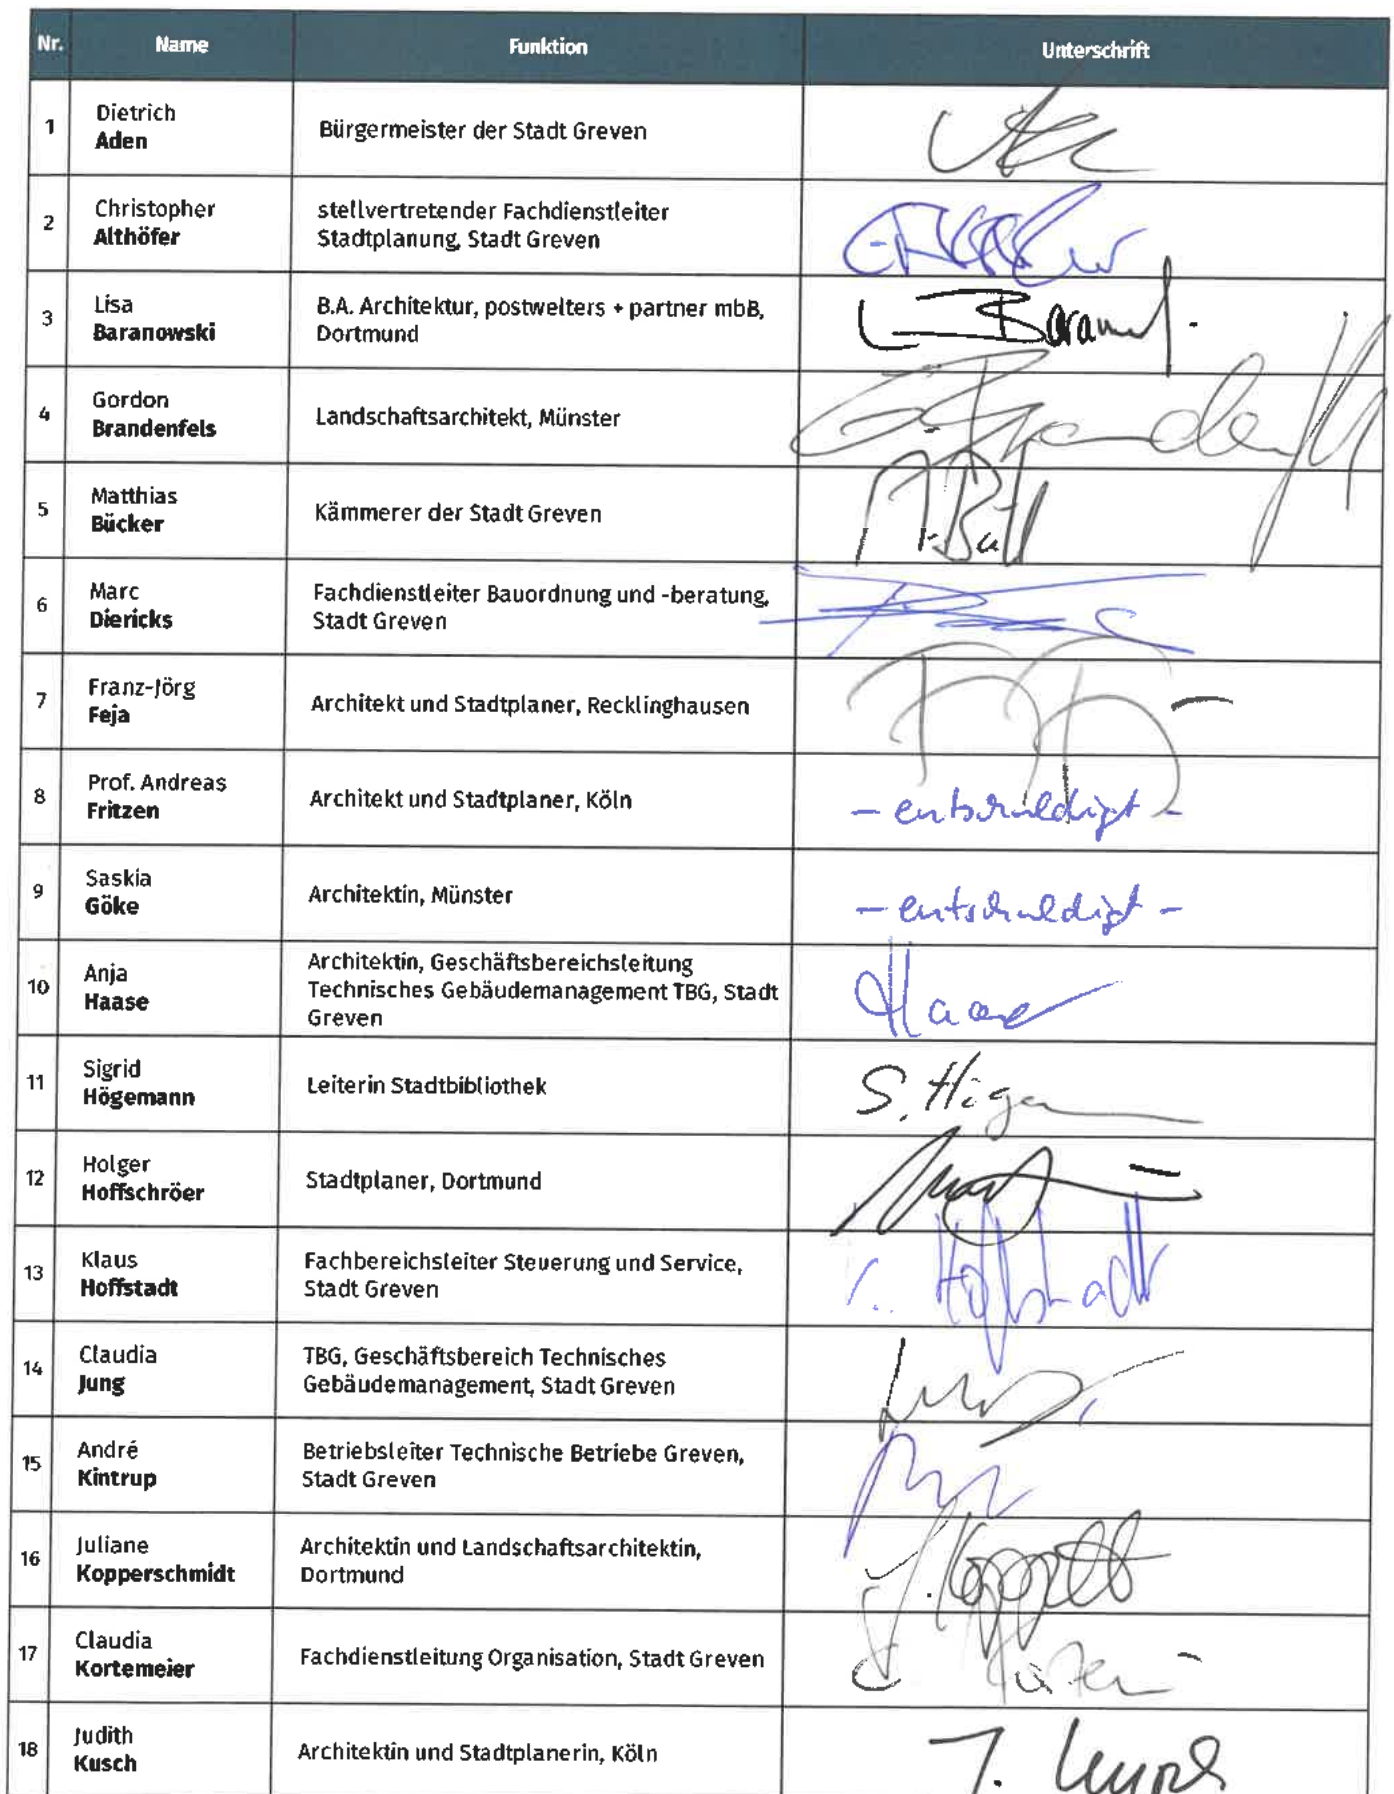 Nr. Name Funktion Unterschrift
1 Dietrich
Aden
Bürgermeister der Stadt Greven
2 Christopher
Althöfer
stellvertretender Fachdienstleiter
Stadtplanung, Stadt Greven
3 Lisa
Baranowski
B.A. Architektur, postwelters + partner mbB,
Dortmund
4 Gordon
Brandenfels
Landschaftsarchitekt, Münster
5 Matthias
Bücker
Kämmerer der Stadt Greven
6 Marc
Diericks
Fachdienstleiter Bauordnung und -beratung,
Stadt Greven
7 Franz-Jörg
Feja
Architekt und Stadtplaner, Recklinghausen
8 Prof. Andreas
Fritzen
Architekt und Stadtplaner, Köln
- entschuldigt -
9 Saskia
Göke
Architektin, Münster
- entschuldigt -
10 Anja
Haase
Architektin, Geschäftsbereichsleitung
Technisches Gebäudemanagement TBG, Stadt
Greven
Haase
11 Sigrid
Högemann
Leiterin Stadtbibliothek
12 Holger
Hoffschröer
Stadtplaner, Dortmund
13 Klaus
Hoffstadt
Fachbereichsleiter Steuerung und Service,
Stadt Greven
Hoffstadt
14 Claudia
Jung
TBG, Geschäftsbereich Technisches
Gebäudemanagement, Stadt Greven
15 André
Kintrup
Betriebsleiter Technische Betriebe Greven,
Stadt Greven
16 Juliane
Kopperschmidt
Architektin und Landschaftsarchitektin,
Dortmund
17 Claudia
Kortemeier
Fachdienstleitung Organisation, Stadt Greven
18 Judith
Kusch
Architektin und Stadtplanerin, Köln
J. Kusch